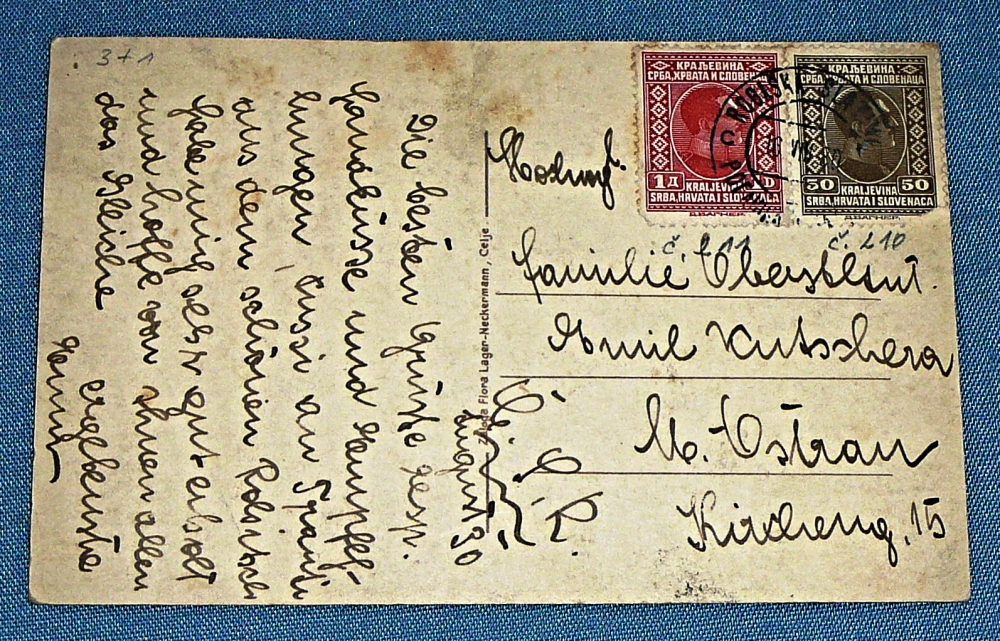 3+1
Die besten Grüße resp.
Handküsse und Empfeh-
lungen, Bussi an Franti
aus dem schönen Rohitsch
habe mich sehr gut erholt
und hoffe von Ihnen allen
das Gleiche
ergebenste
August 30
Založba Flora Lager-Neckermann, Celje.
КРАЉЕВИНА
СРБА, ХРВАТА И СЛОВЕНАЦА
1Д
KRALJEVINA
SRBA, HRVATA I SLOVENACA
КРАЉЕВИНА
СРБА, ХРВАТА И СЛОВЕНАЦА
50 KRALJEVINA 50
SRBA, HRVATA I SLOVENACA
ROGAŠKA
č. 211
č. 210
Familie Oberstltnt.
Emil Kutschera
M. Ostrau
Kircheng. 15
Č. S. R.